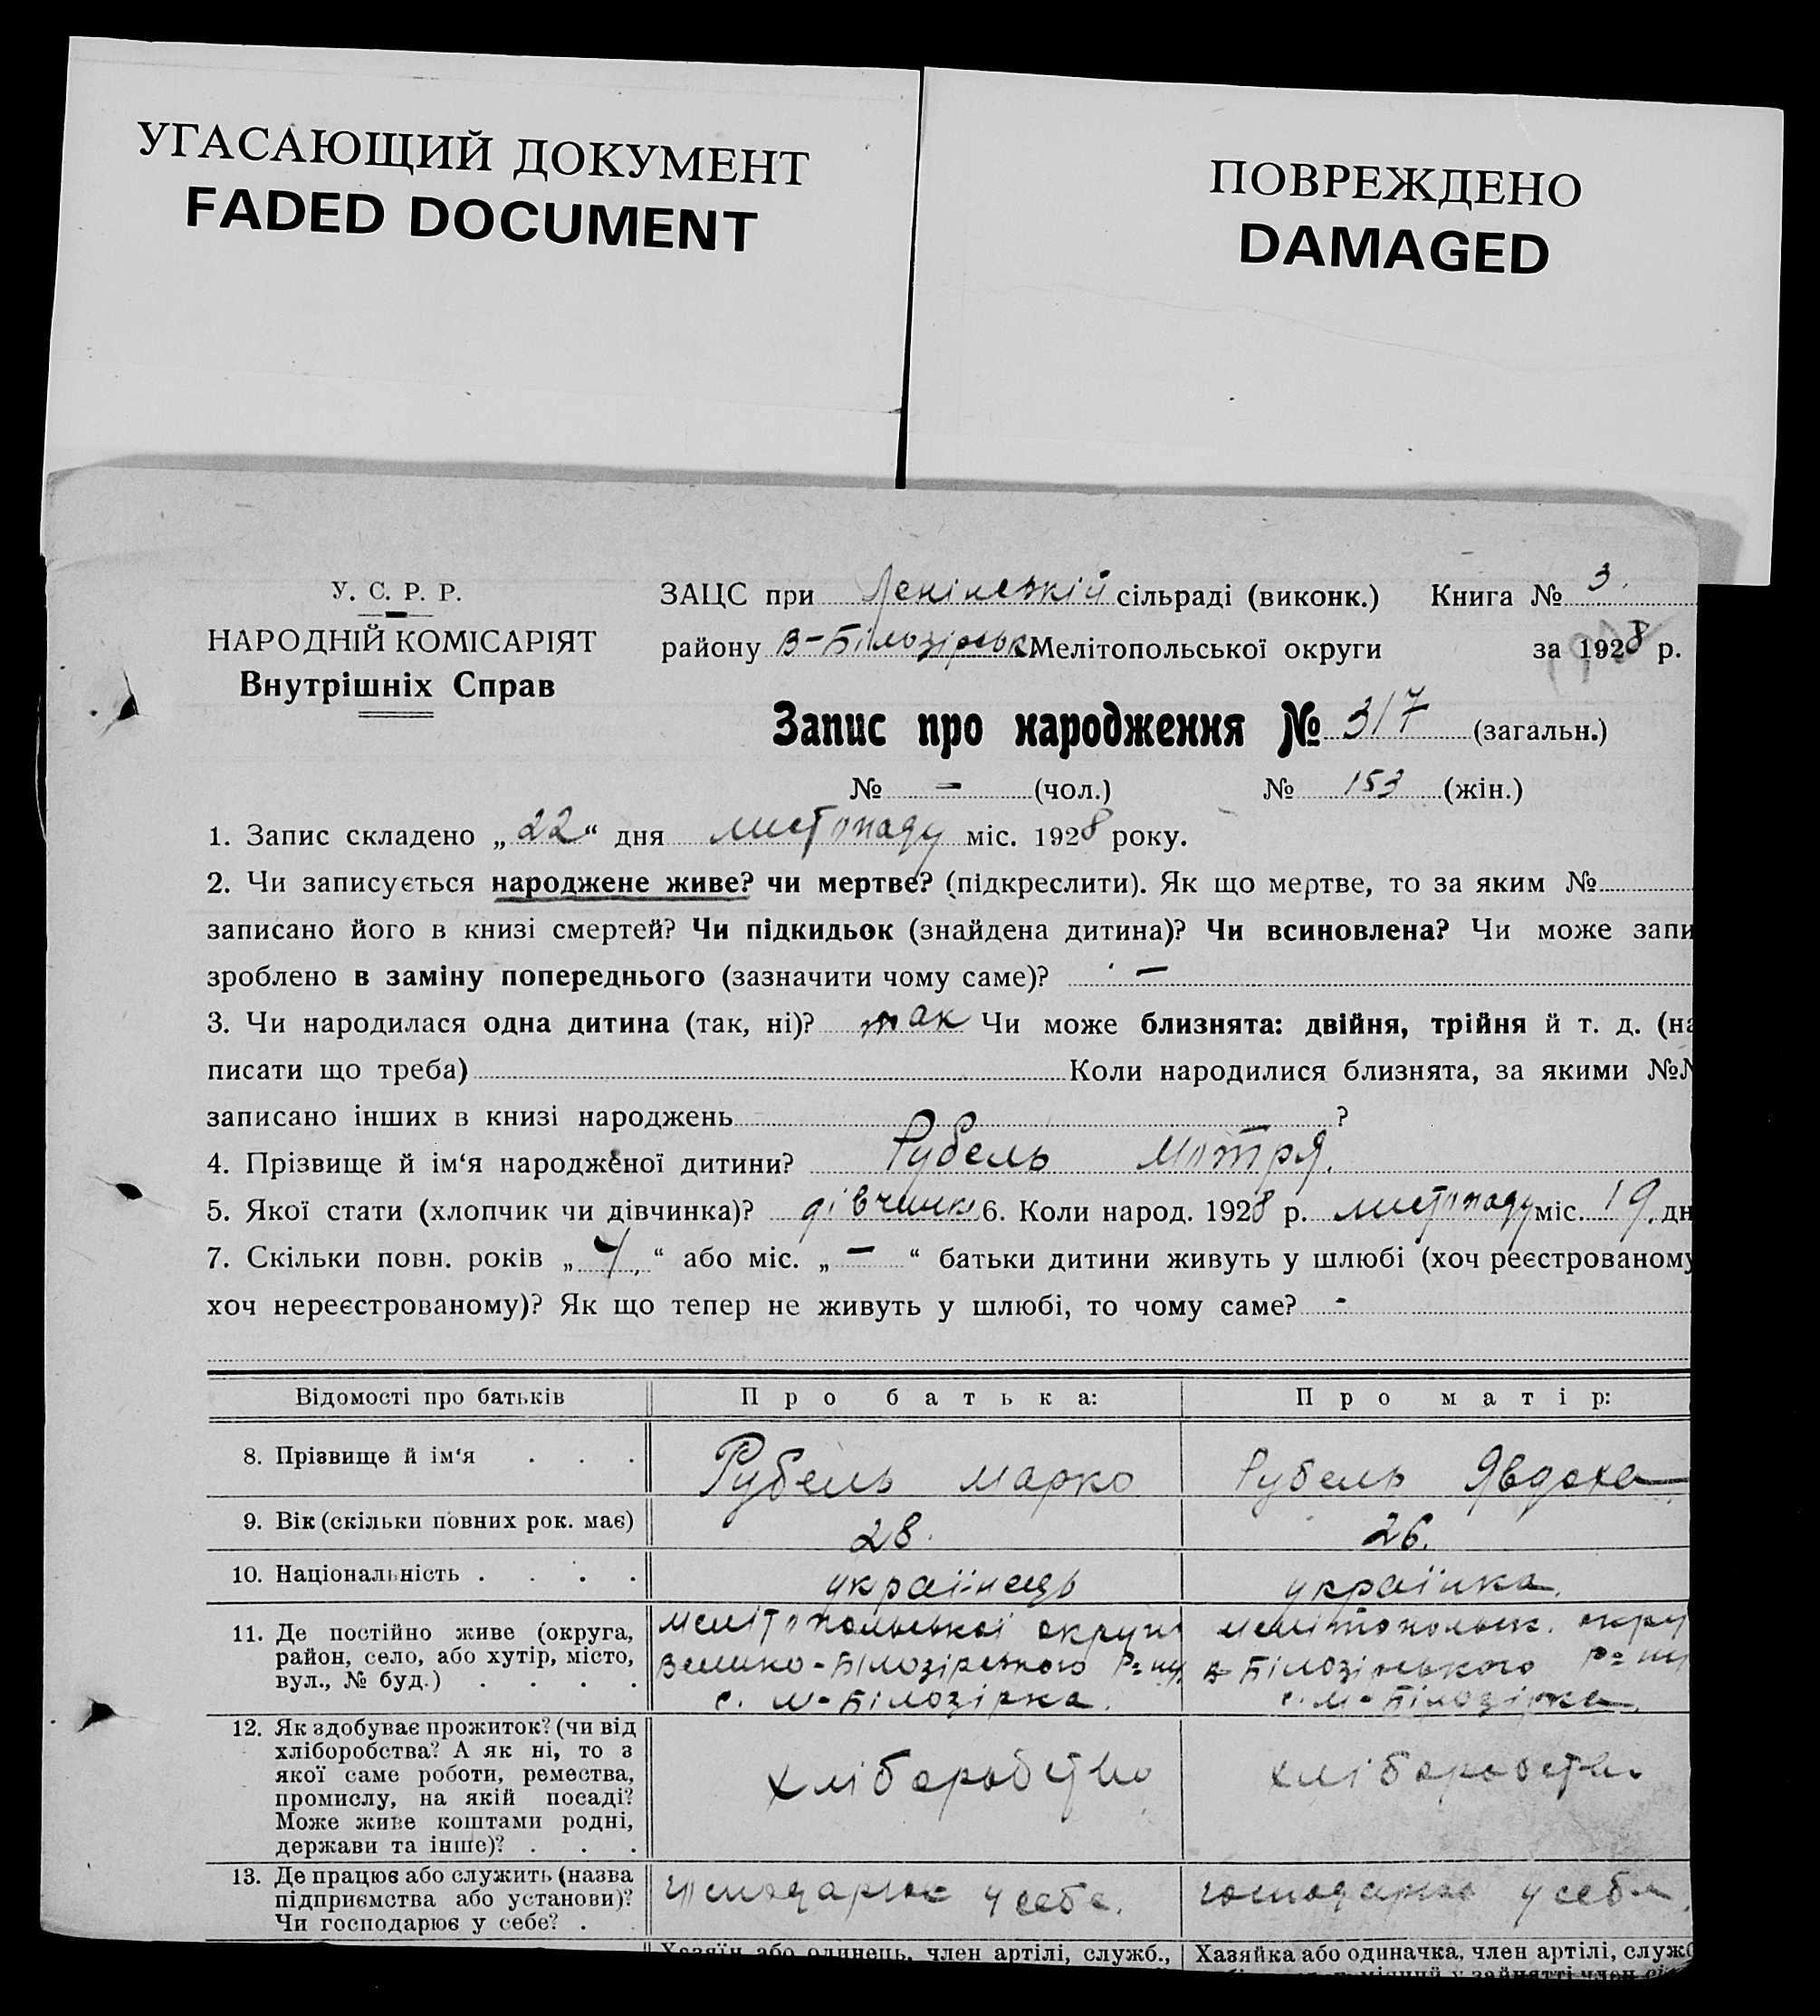 УГАСАЮЩИЙ ДОКУМЕНТ
FADED DOCUMENT
ПОВРЕЖДЕНО
DAMAGED
У. С. Р. Р.
НАРОДНІЙ КОМІСАРІЯТ
Внутрішніх Справ
ЗАЦС при Ленінській сільраді (виконк.) Книга № 3.
району В-Білозірськ Мелітопольської округи за 1928 р.
Запис про народження № 317 (загальн.)
№ – (чол.) № 153 (жін.)
1. Запис складено „22“ дня листопаду міс. 1928 року.
2. Чи записується народжене живе? чи мертве? (підкреслити). Як що мертве, то за яким №
записано його в книзі смертей? Чи підкидьок (знайдена дитина)? Чи всиновлена? Чи може запи
зроблено в заміну попереднього (зазначити чому саме)? –
3. Чи народилася одна дитина (так, ні)? так Чи може близнята: двійня, трійня й т. д. (на
писати що треба) Коли народилися близнята, за якими №№
записано інших в книзі народжень ?
4. Прізвище й ім‘я народженої дитини? Рубель Мотря.
5. Якої стати (хлопчик чи дівчинка)? дівчинка 6. Коли народ. 1928 р. листопаду міс. 19. дн
7. Скільки повн. років „ “ або міс. „–“ батьки дитини живуть у шлюбі (хоч реєстрованому
хоч нереєстрованому)? Як що тепер не живуть у шлюбі, то чому саме? -
Відомості про батьків Про батька: Про матір:
8. Прізвище й ім‘я . . . Рубель Марко Рубель Явдоха
9. Вік (скільки повних рок. має) 28. 26.
10. Національність . . . . українець українка.
11. Де постійно живе (округа,
район, село, або хутір, місто,
вул., № буд.) . . . .
Мелітопольської округи
Велико-Білозірського р=ну
с. М-Білозірка.
Мелітопольськ. окру
В-Білозірського р=ну
с. М-Білозірка.
12. Як здобуває прожиток? (чи від
хліборобства? А як ні, то з
якої саме роботи, ремества,
промислу, на якій посаді?
Може живе коштами родні,
держави та інше)? . . .
хліборобство
хліборобство
13. Де працює або служить (назва
підприємства або установи)?
Чи господарює у себе? . .
господарює у себе.
господарює у себе.
Хазяїн або одинець, член артілі, служб., Хазяйка або одиначка, член артілі, служб